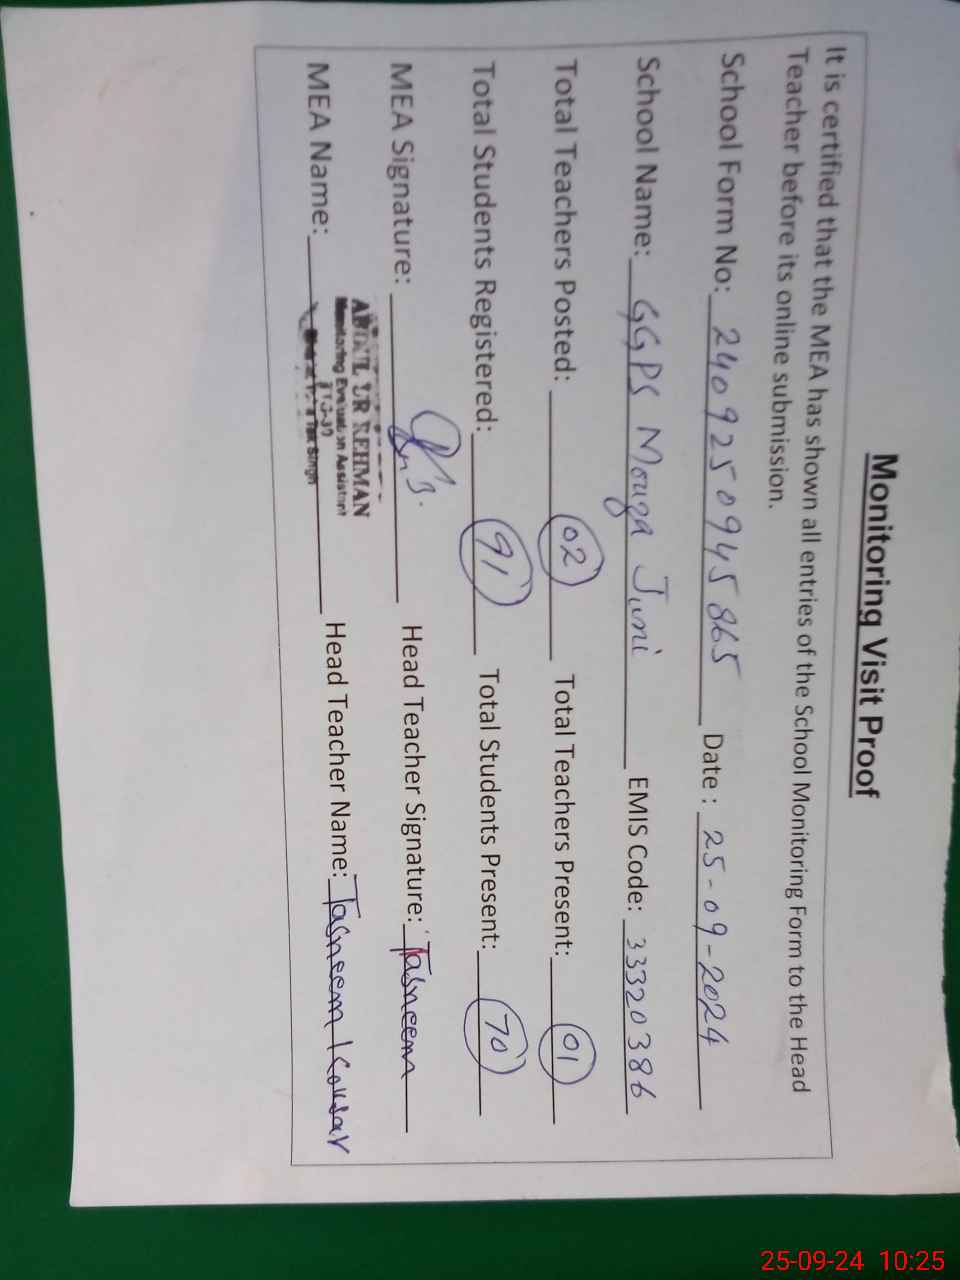 Monitoring Visit Proof
It is certified that the MEA has shown all entries of the School Monitoring Form to the Head
Teacher before its online submission.
School Form No: 2409250945865 Date : 25-09-2024
School Name: GGPS Mouga Juni EMIS Code: 33320386
Total Teachers Posted: 02 Total Teachers Present: 01
Total Students Registered: 91 Total Students Present: 70
MEA Signature: Head Teacher Signature: Tasneem
ABDUL UR REHMAN
Monitoring Evaluation Assistant
MEA Name: Head Teacher Name: Tasneem Kousar
Tek Singh
25-09-24 10:25